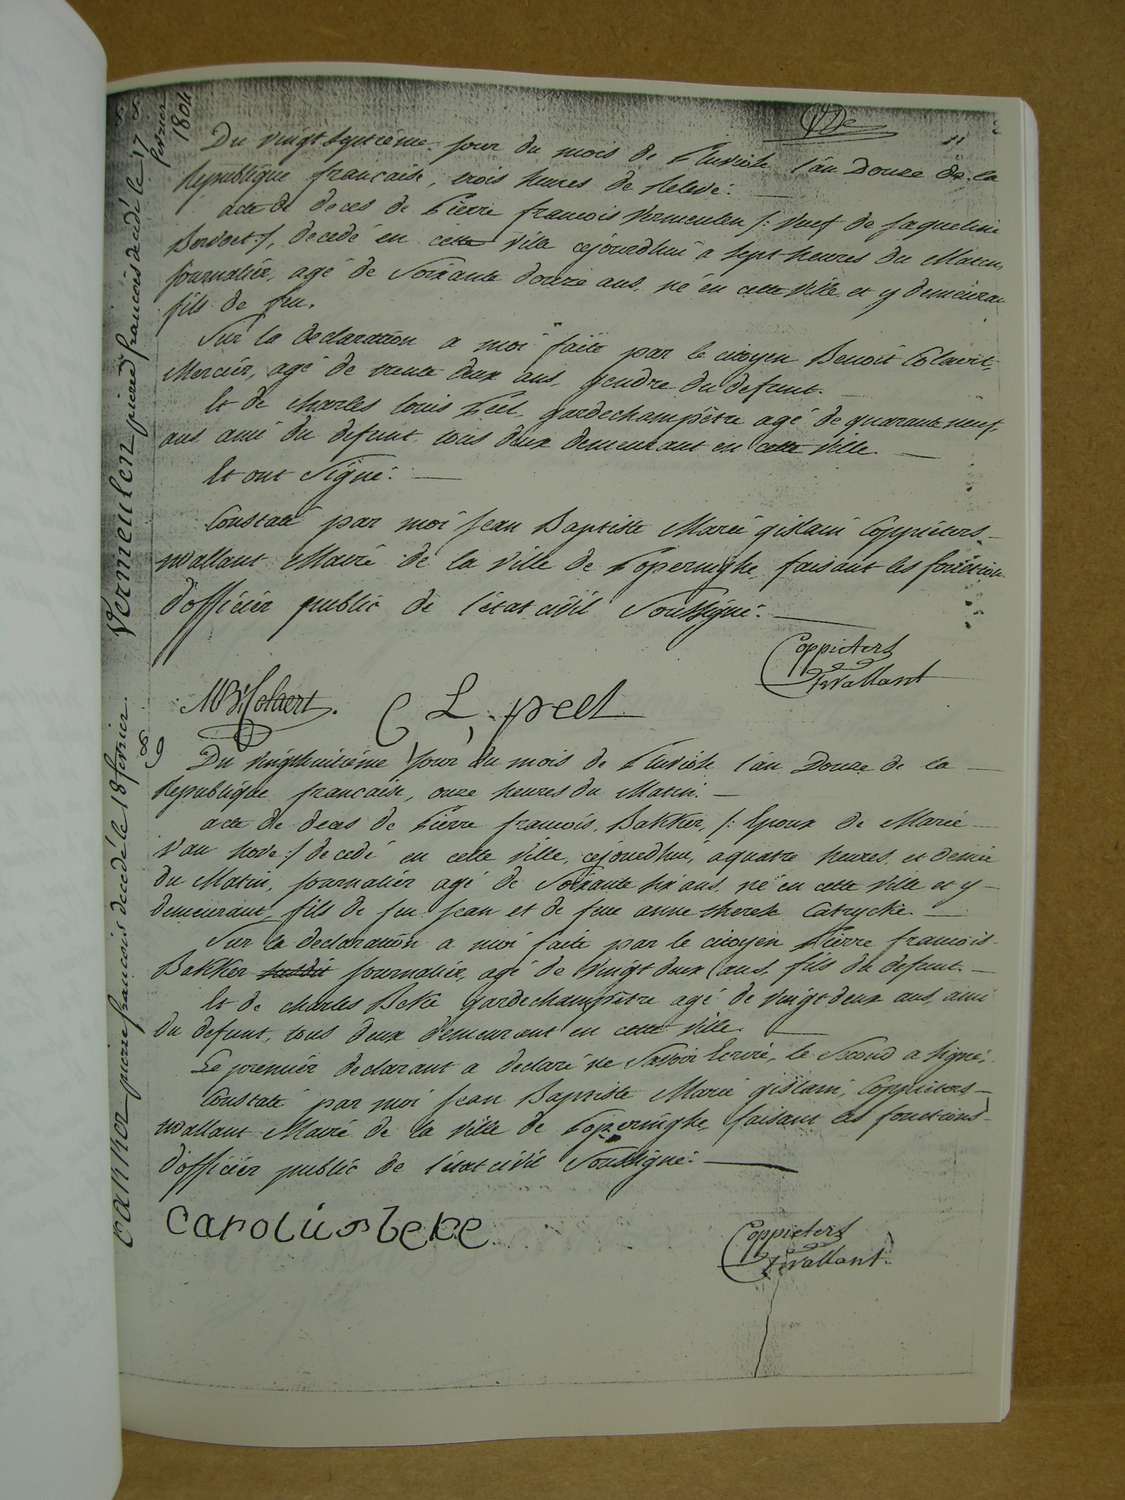 fevrier
1804
Vermeulen pierre françois decedé le 17
Du vingt septieme jour du mois de Pluviose l'an Douze de la
Republique francaise, trois heures de Relevé.
acte de deces de Pierre francois Vermeulen /: Veuf de Jaqueline
:/, decedé en cette Ville cejourdhui a sept heures du Matin,
Journalier, agé de Soixante douze ans, né en cette Ville et y demeurant
fils de feu.
Sur la declaration a moi faite par le citoyen Benoit Colaert,
Mercier, agé de trente deux ans, gendre du defunt.
Et de Charles louis Peel, gardechampêtre agé de quarante neuf
ans ami du defunt, tous deux demeurant en cette Ville.
Et ont Signé.
Constaté par moi Jean Baptiste Marie gislain Coppieters
wallant Maire de la Ville de Poperinghe, faisant les fonctions
d'officier public de l'état civil Soussigné.
Coppieters
Wallant
Colaert.
C L, peel
89
pierre francois decedé le 18 fevrier
Du vingthuitieme jour du mois de Pluviose l'an Douze de la
Republique francaise, onze heures du Matin.
acte de deces de Pierre francois Bakker, /: Epoux de Marie
Van hove :/ decedé en cette Ville, cejourdhui, a quatre heures et demie
du Matin, Journalier agé de Soixante six ans, né en cette Ville et y
demeurant, fils de feu Jean et de feue anne therese Catrycke.
Sur la declaration a moi faite par le citoyen Pierre francois
Bakker susdit journalier, agé de Vingt deux ans, fils du defunt.
Et de Charles Beke gardechampêtre agé de Vingt deux ans, ami
du defunt, tous deux demeurant en cette Ville.
Le premier declarant a declaré ne Savoir Ecrire, le Second a Signé,
Constaté par moi Jean Baptiste Marie gislain, Coppieters
wallant Maire de la Ville de Poperinghe, faisant les fonctions
d'officier public de l'état civil Soussigné.
Carolus beke
Coppieters
Wallant.